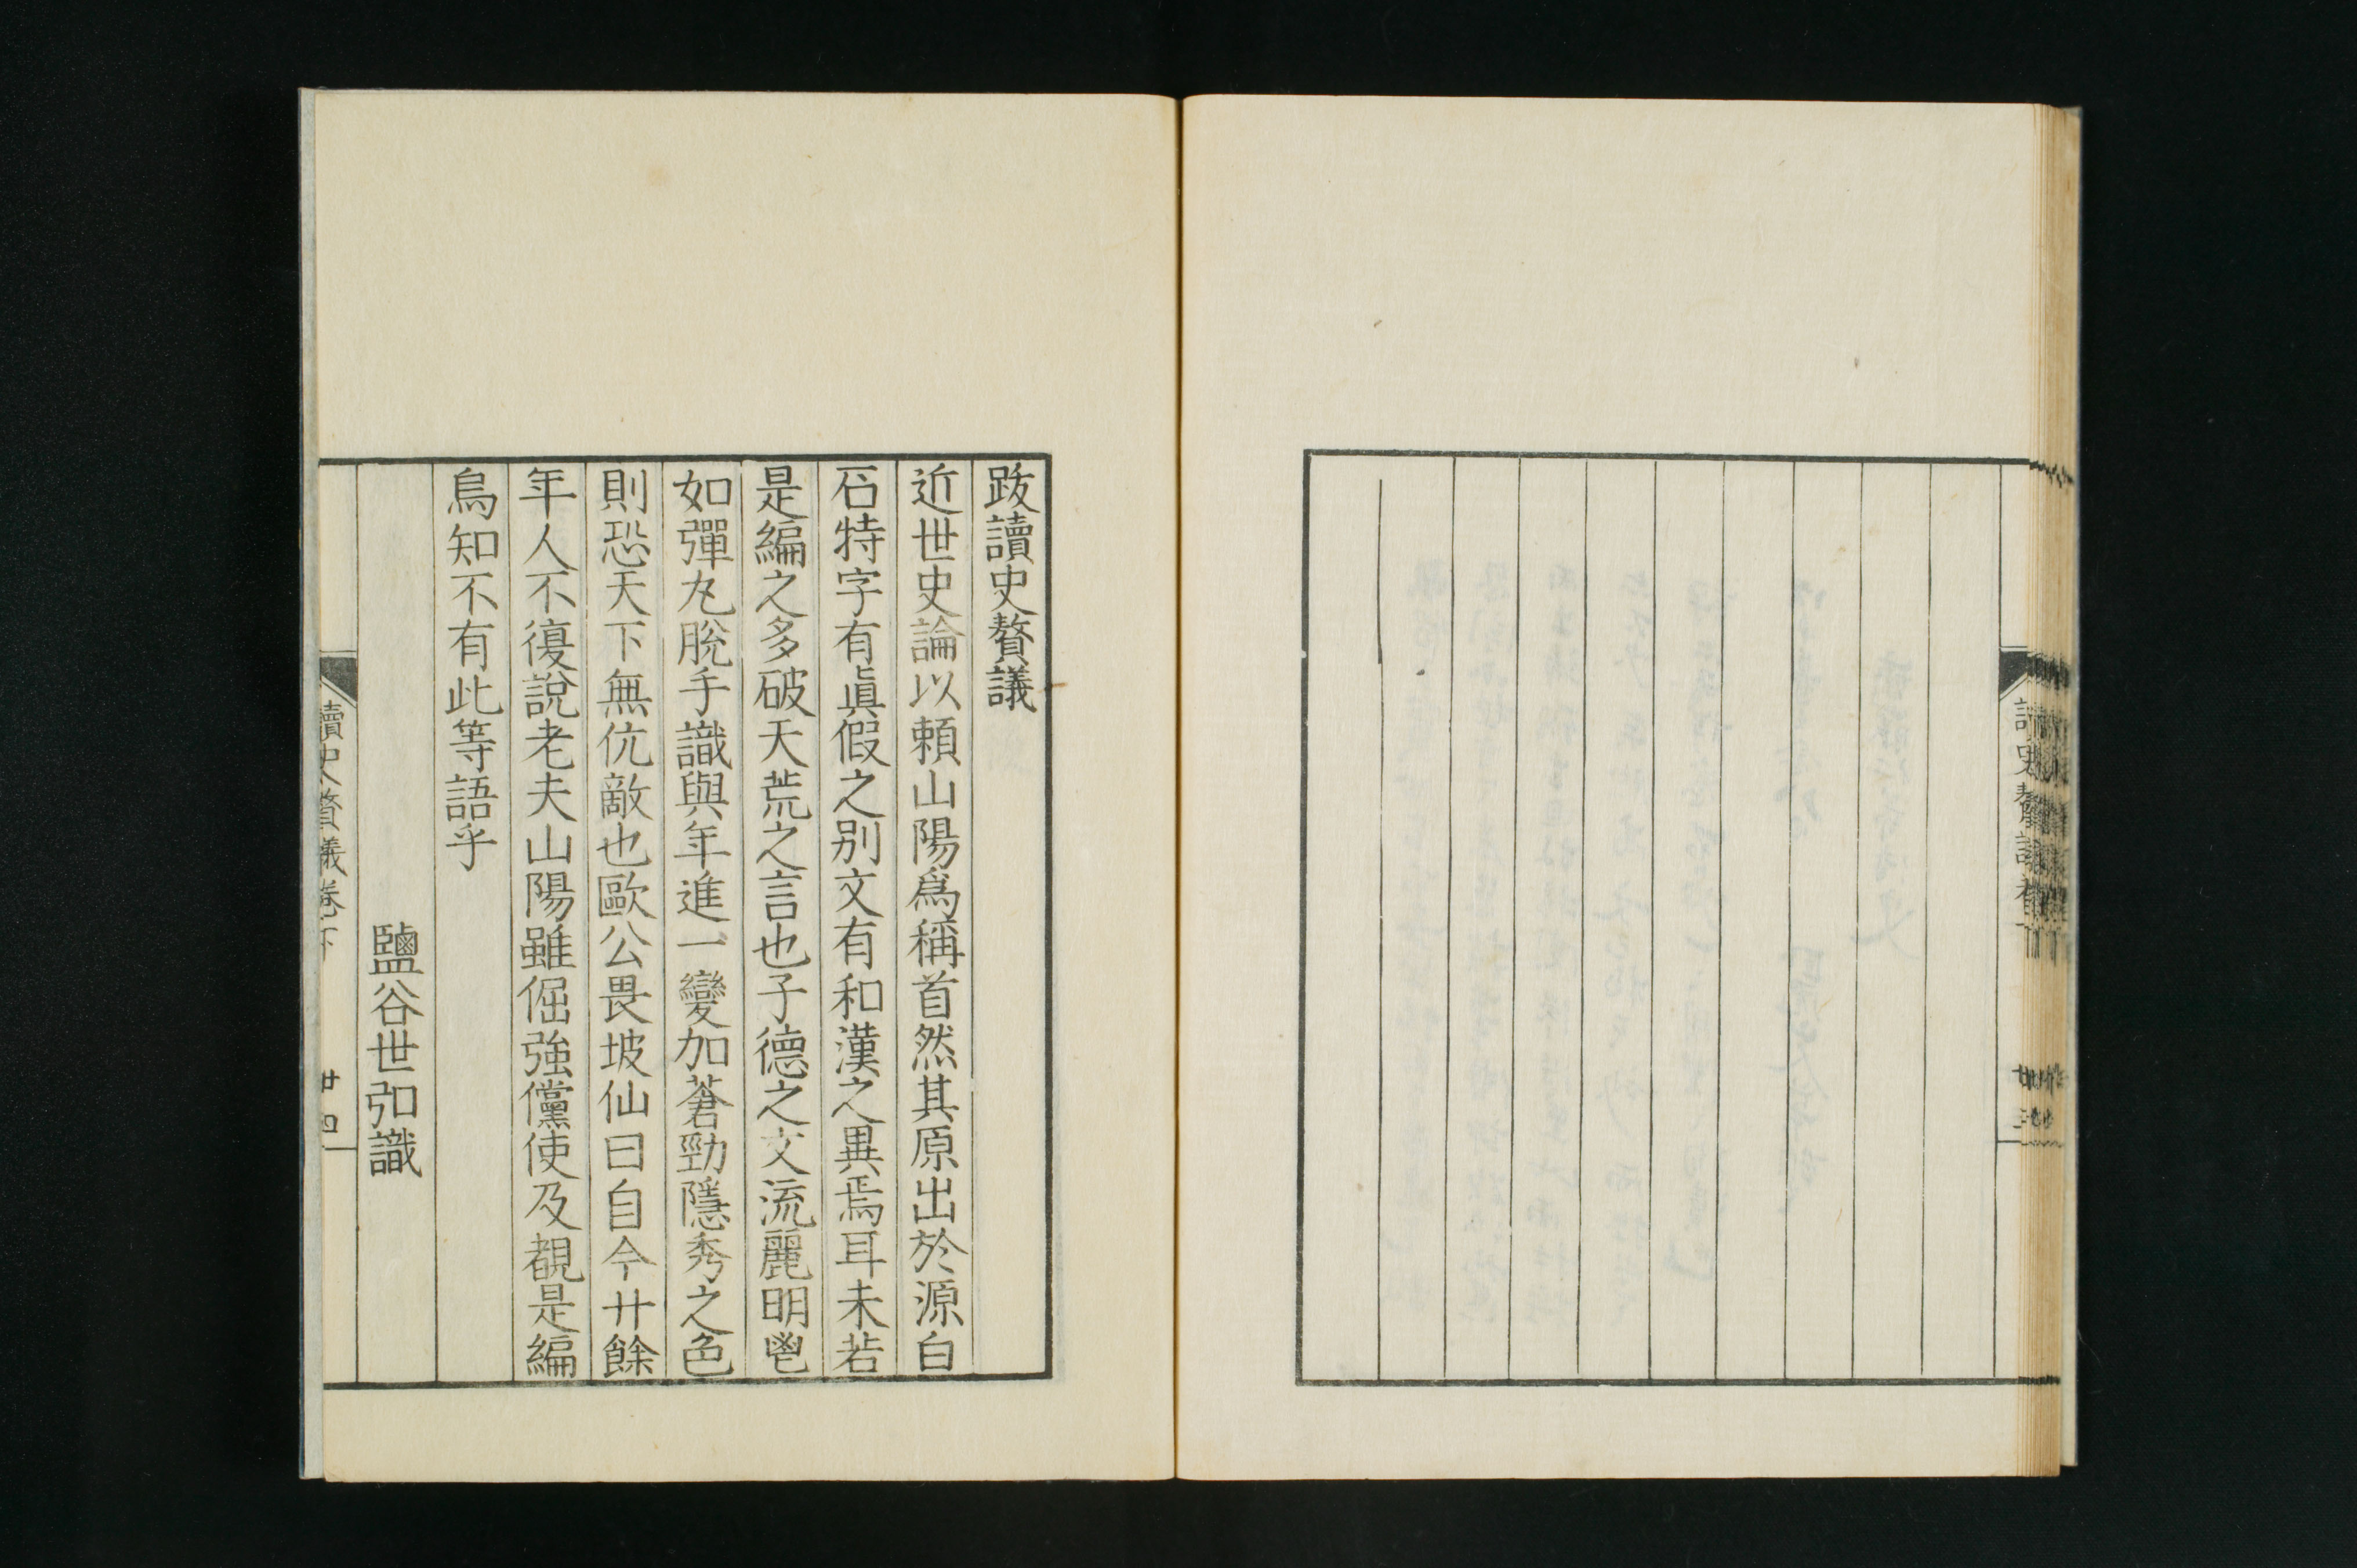 跋讀史贅議
近世史論以賴山陽爲稱首然其原出於源白
石特字有眞假之別文有和漢之異焉耳未若
是編之多破天荒之言也子德之文流麗明鬯
如彈丸脫手識與年進一變加蒼勁隱秀之色
則恐天下無伉敵也歐公畏坡仙曰自今廾餘
年人不復說老夫山陽雖倔強儻使及覩是編
烏知不有此等語乎
鹽谷世弘識
讀史贅議卷下
廿四